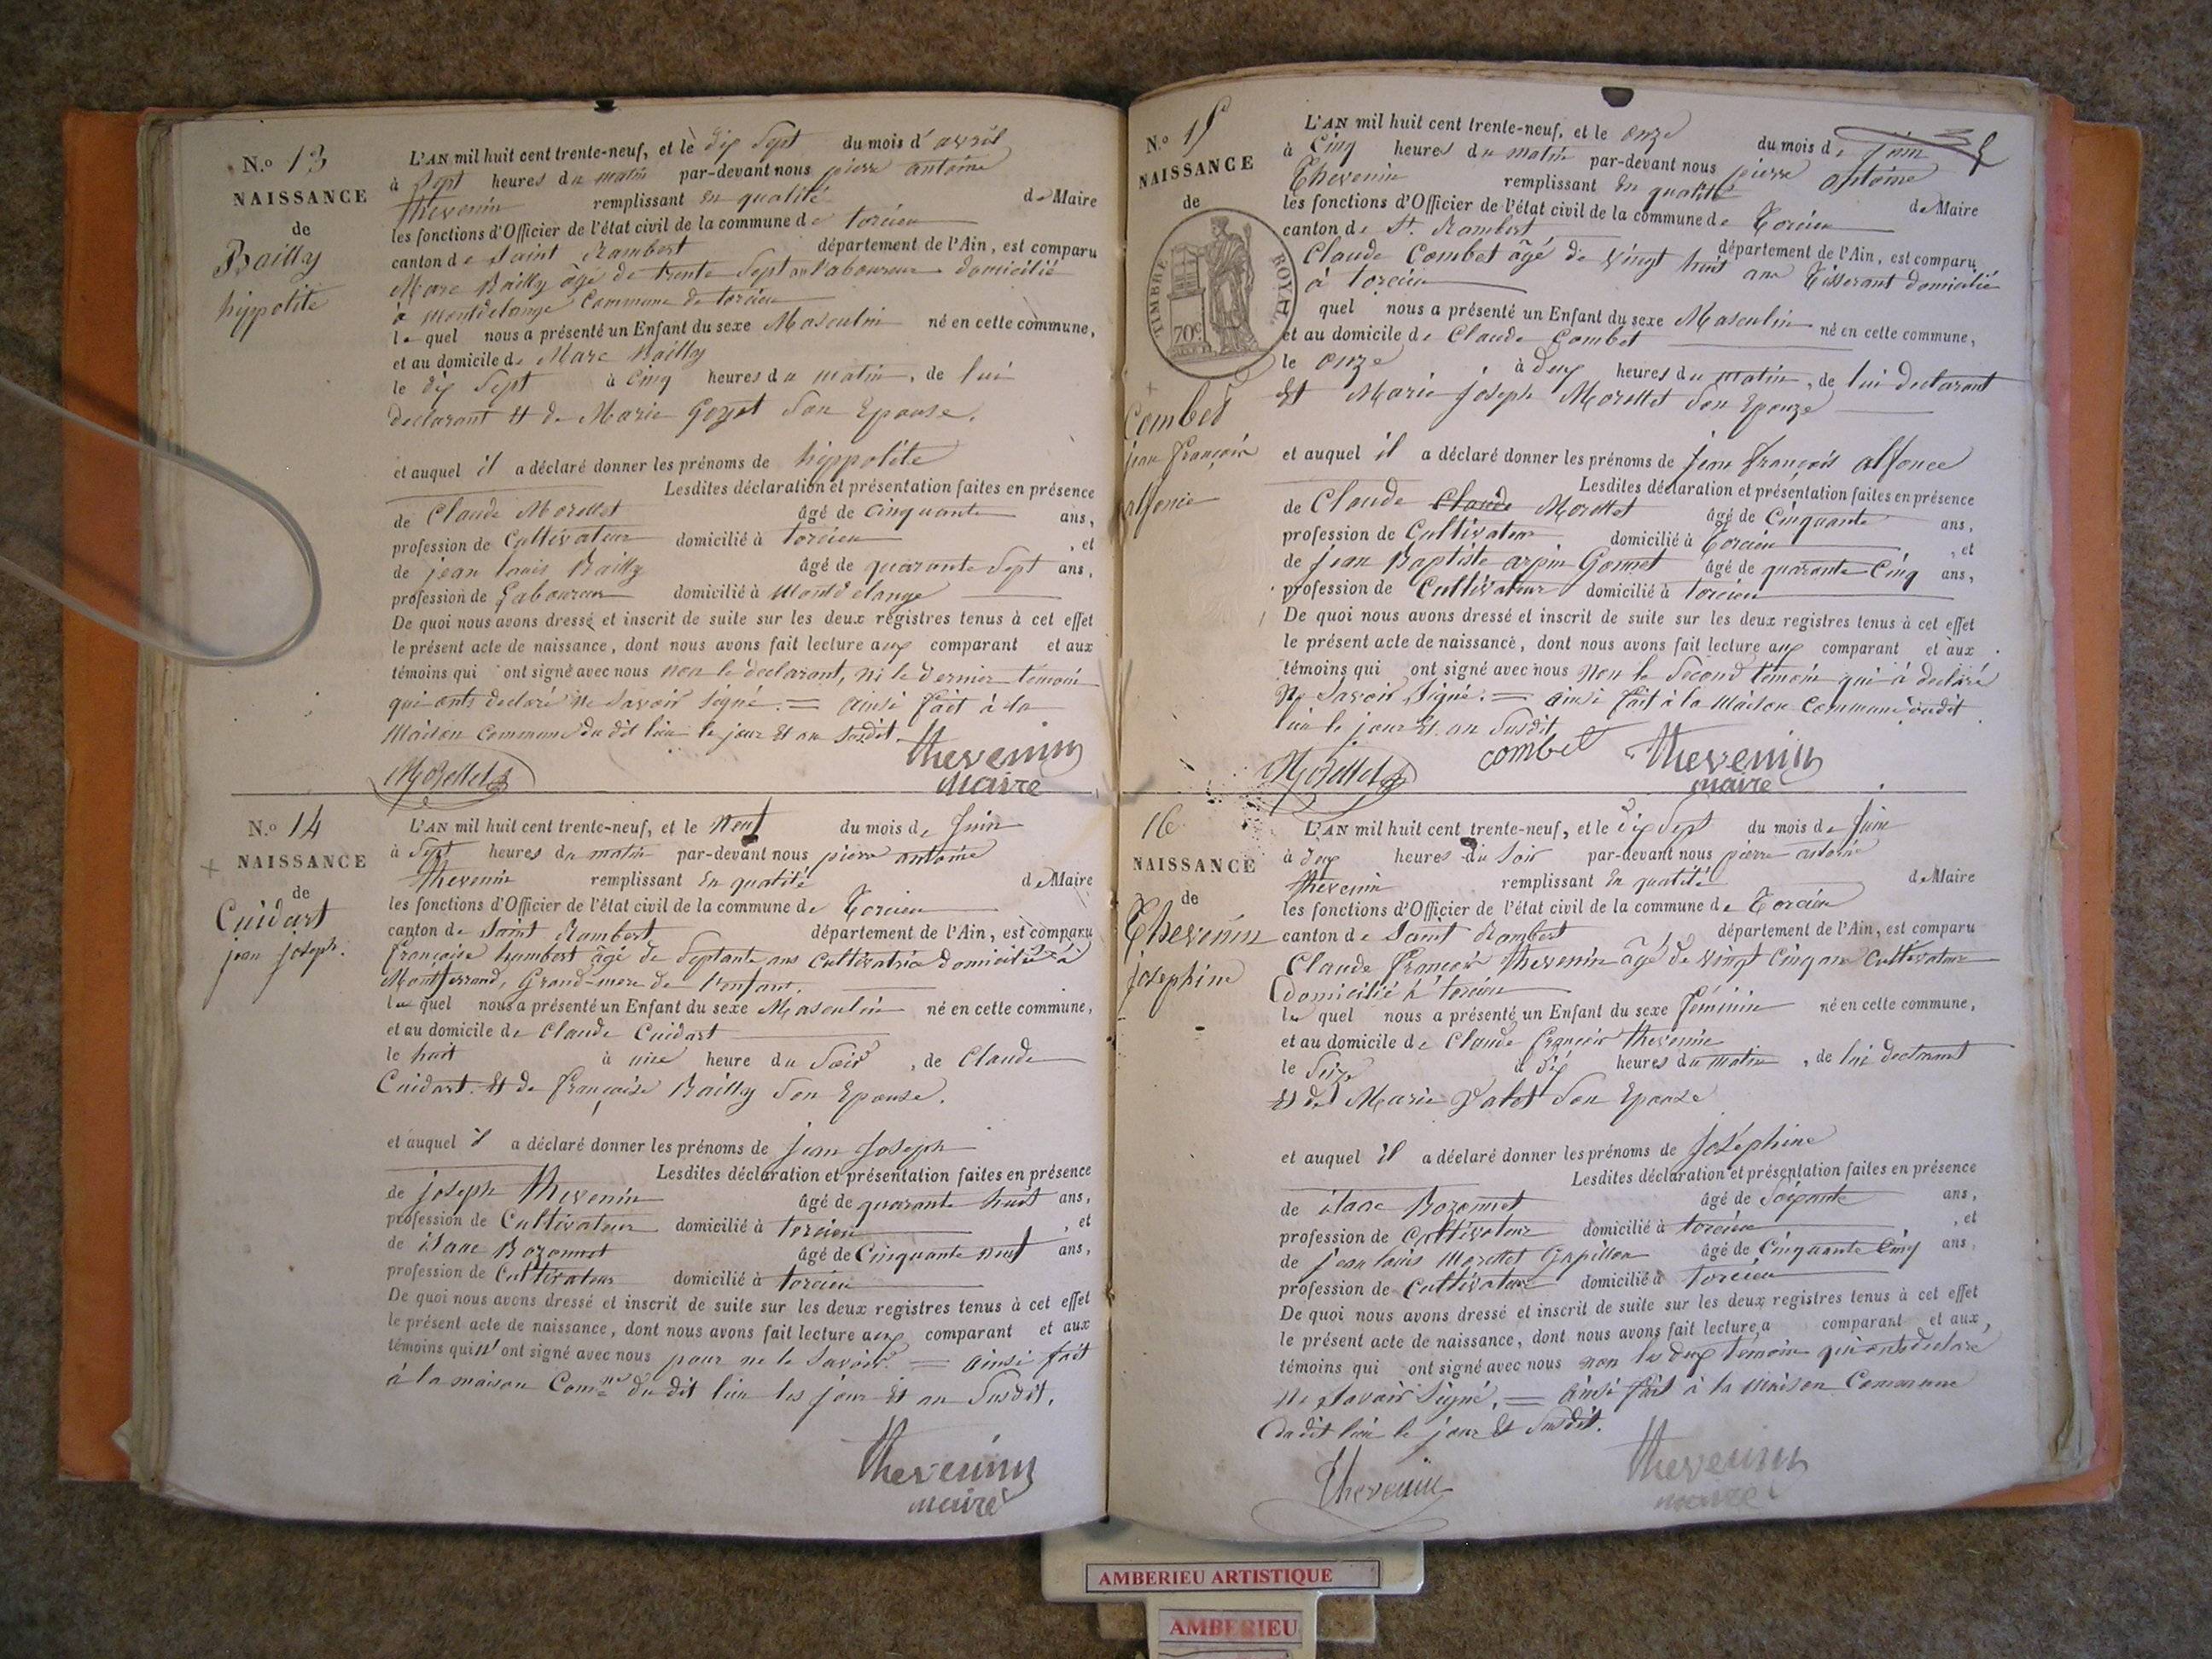 N.o 13
NAISSANCE
de
Bailly
hippolite
L'AN mil huit cent trente-neuf, et le dix Sept du mois d'avril
à Sept heures du matin par-devant nous pierre antoine
thevenin remplissant En qualité de Maire
les fonctions d'Officier de l'état civil de la commune de torcieu
canton de Saint Rambert département de l'Ain, est comparu
Marc Bailly âgé de trente Sept an laboureur domicilié
à montdelange Commune de torcieu
le quel nous a présenté un Enfant du sexe Masculin né en cette commune,
et au domicile de Marc Bailly
le dix Sept à Cinq heures du matin, de lui
declarant Et de Marie Goyet Son Epouse.
et auquel il a déclaré donner les prénoms de hippolite
Lesdites déclaration et présentation faites en présence
de Claude Morellet âgé de Cinquante ans,
profession de Cultivateur domicilié à torcieu, et
de jean louis Bailly âgé de quarante Sept ans,
profession de Laboureur domicilié à Montdelange
De quoi nous avons dressé et inscrit de suite sur les deux registres tenus à cet effet
le présent acte de naissance, dont nous avons fait lecture aux comparant et aux
témoins qui ont signé avec nous non le declarant, ni le dernier témoin
qui onts declaré ne Savoir Signé. = ainsi fait à la
Maison Commune du dit lieu le jour Et an Susdit.
Morellet
thevenin
maire
N.o 14
NAISSANCE
de
Cuidart
jean joseph.
L'AN mil huit cent trente-neuf, et le Neuf du mois de Juin
à Sept heures du matin par-devant nous pierre antoine
thevenin remplissant En qualité de Maire
les fonctions d'Officier de l'état civil de la commune de Torcieu
canton de Saint Rambert département de l'Ain, est comparu
françoise humbert âgé de Septante ans Cultivatrice Domicilié à
Montferrand, Grand-mere de l'enfant.
la quel nous a présenté un Enfant du sexe Masculin né en cette commune,
et au domicile de Claude Cuidart
le huit à une heure du Soir, de Claude
Cuidart. Et de françoise Bailly Son Epouse.
et auquel il a déclaré donner les prénoms de jean Joseph
Lesdites déclaration et présentation faites en présence
de joseph thevenin âgé de quarante huit ans,
profession de Cultivateur domicilié à torcieu, et
de isaac Bozonnet âgé de Cinquante neuf ans,
profession de Cultivateur domicilié à torcieu
De quoi nous avons dressé et inscrit de suite sur les deux registres tenus à cet effet
le présent acte de naissance, dont nous avons fait lecture aux comparant et aux
témoins qui n'ont signé avec nous pour ne le Savoir. = ainsi fait
à la maison Comne du dit lieu les jour Et an Susdit.
thevenin
maire
N.o 15
NAISSANCE
de
TIMBRE ROYAL
70c
Combet
jean françois
alfonce
L'AN mil huit cent trente-neuf, et le onze du mois de juin
à Cinq heures du matin par-devant nous pierre antoine
Thevenin remplissant En qualité de Maire
les fonctions d'Officier de l'état civil de la commune de Torcieu
canton de St. Rambert département de l'Ain, est comparu
Claude Combet âgé de vingt huit ans Tisserant domicilié
à torcieu
quel nous a présenté un Enfant du sexe Masculin né en cette commune,
et au domicile de Claude Combet
le onze à deux heures du matin, de lui declarant
Et Marie joseph Morellet Son Epouze
et auquel il a déclaré donner les prénoms de jean françois alfonce
Lesdites déclaration et présentation faites en présence
de Claude Claude Morellet âgé de Cinquante ans,
profession de Cultivateur domicilié à Torcieu, et
de jean Baptiste arpin Gonnet âgé de quarante Cinq ans,
profession de Cultivateur domicilié à torcieu
De quoi nous avons dressé et inscrit de suite sur les deux registres tenus à cet effet
le présent acte de naissance, dont nous avons fait lecture aux comparant et aux
témoins qui ont signé avec nous non le Second témoin qui à declaré
Ne Savoir Signé. = ainsi fait à la Maison Commune dudit
lieu le jour Et an Susdit
Morellet
combet
thevenin
maire
16
NAISSANCE
de
Thevenin
josephine
L'AN mil huit cent trente-neuf, et le Dix Sept du mois de Juin
à deux heures du Soir par-devant nous pierre antoine
thevenin remplissant En qualité de Maire
les fonctions d'Officier de l'état civil de la commune de Torcieu
canton de Saint Rambert département de l'Ain, est comparu
Claude françois thevenin âgé de vingt Cinq ans Cultivateur
Domicilié à torcieu
le quel nous a présenté un Enfant du sexe féminin né en cette commune,
et au domicile de Claude françois thevenin
le Seize à dix heures du matin, de lui declarant
Et de Marie Son Epouze
et auquel il a déclaré donner les prénoms de Joséphine
Lesdites déclaration et présentation faites en présence
de isaac Bozonnet âgé de Soixante ans,
profession de Cultivateur domicilié à torcieu, et
de jean louis Morellet Gapillon âgé de Cinquante Cinq ans,
profession de Cultivateur domicilié à Torcieu
De quoi nous avons dressé et inscrit de suite sur les deux registres tenus à cet effet
le présent acte de naissance, dont nous avons fait lecture a comparant et aux,
témoins qui ont signé avec nous non les deux témoin qui ont declaré
Ne Savoir Signé. = ainsi fait à la Maison Commune
du dit lieu le jour Et Susdit.
Thevenin
thevenin
maire
AMBERIEU ARTISTIQUE
AMBERIEU